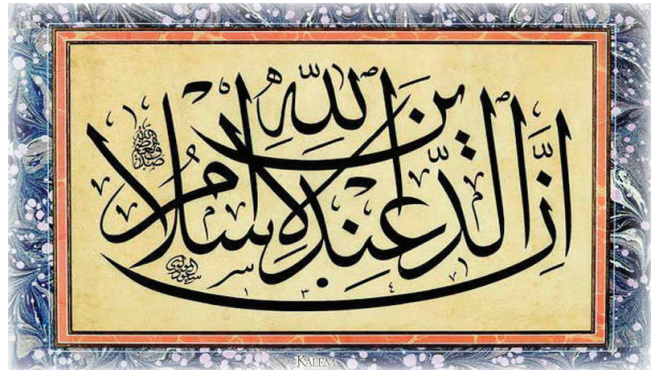 إِنَّ الدِّينَ عِنْدَ اللّٰهِ الْاِسْلَامُ
صدق الله العظيم
١٣٤٧
KALEM